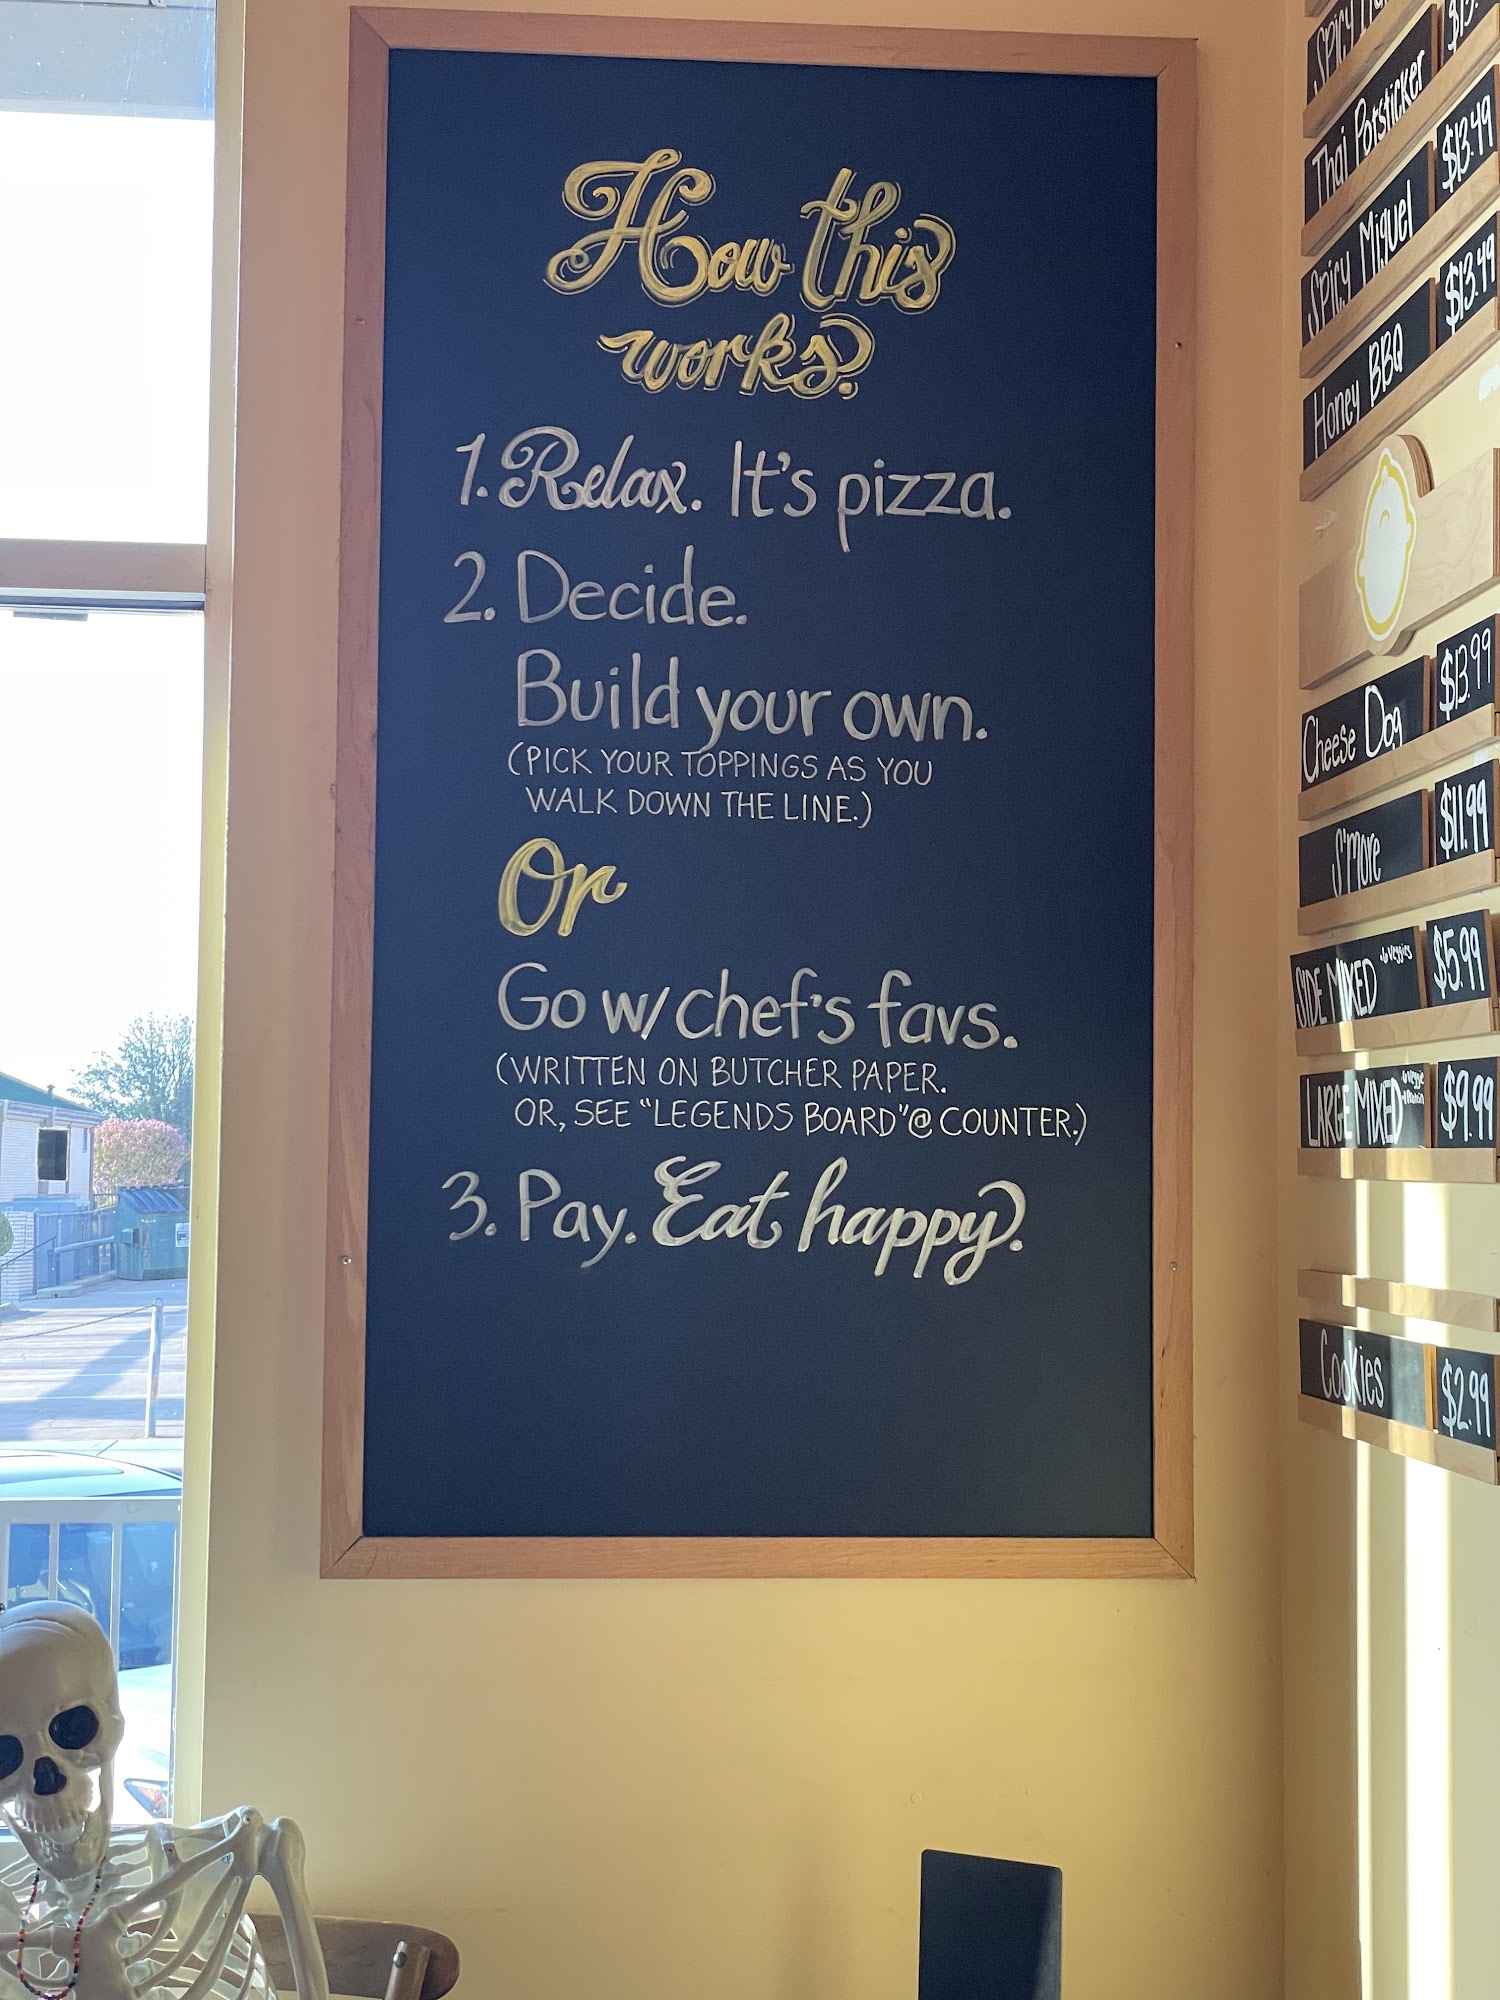 How this
works:
1. Relax. It's pizza.
2. Decide.
Build your own.
(PICK YOUR TOPPINGS AS YOU
WALK DOWN THE LINE.)
Or
Go w/ chef's favs.
(WRITTEN ON BUTCHER PAPER.
OR, SEE "LEGENDS BOARD" @ COUNTER.)
3. Pay. Eat happy.
Spicy
Thai Potsticker $13.49
Spicy Miguel $13.49
Honey BBQ
Cheese Dog $13.99
S'more $11.99
SIDE MIXED $5.99
LARGE MIXED $9.99
Cookies $2.99